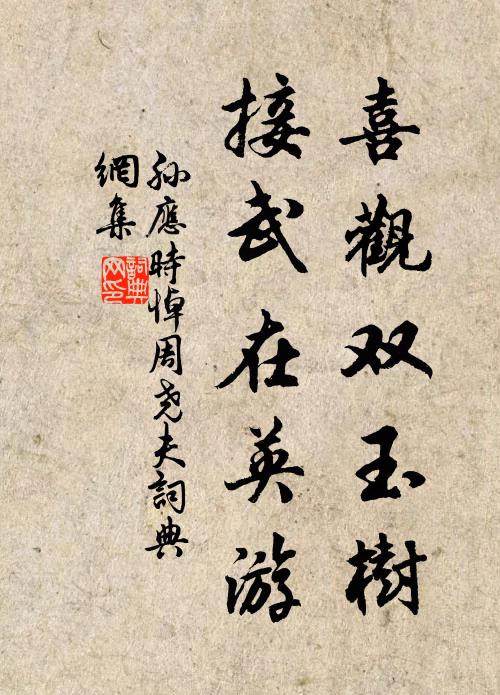 喜觀双玉樹
接武在英游
孙應時悼周尧夫詞典
網集
詞典網印